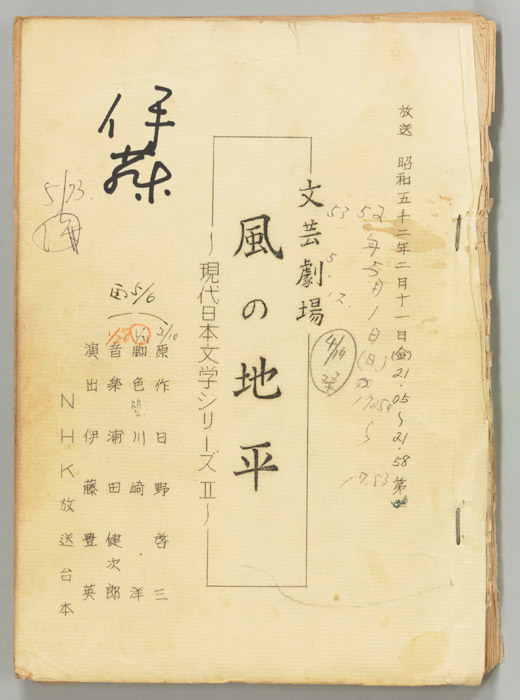 放送 昭和五十二年二月十一日(金)21.05〜21.58 第
52年5月1日(日)
17.05
〜
17.53
53
5.12
4/19
文芸劇場
風の地平
〜現代日本文学シリーズⅡ〜
伊藤
5/23
5/6
2/10
1/28
原作 日野啓三
脚色 川崎洋
音楽 浦田健次郎
演出 伊藤豊英
NHK放送台本